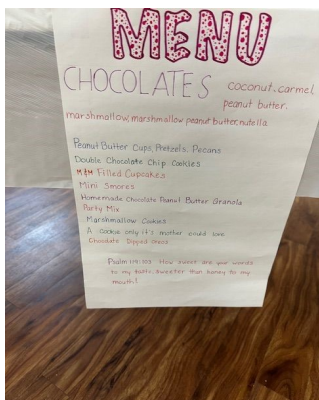 MENU
CHOCOLATES coconut, carmel
peanut butter.
marshmallow, marshmallow peanut butter, nutella
Peanut Butter Cups, Pretzels, Pecans
Double Chocolate Chip Cookies
M&M Filled Cupcakes
Mini Smores
Homemade Chocolate Peanut Butter Granola
Party Mix
Marshmallow Cookies
A cookie only it's mother could love
Chocolate Dipped Oreos
Psalm 119:103 How sweet are your words
to my taste, sweeter than honey to my
mouth!